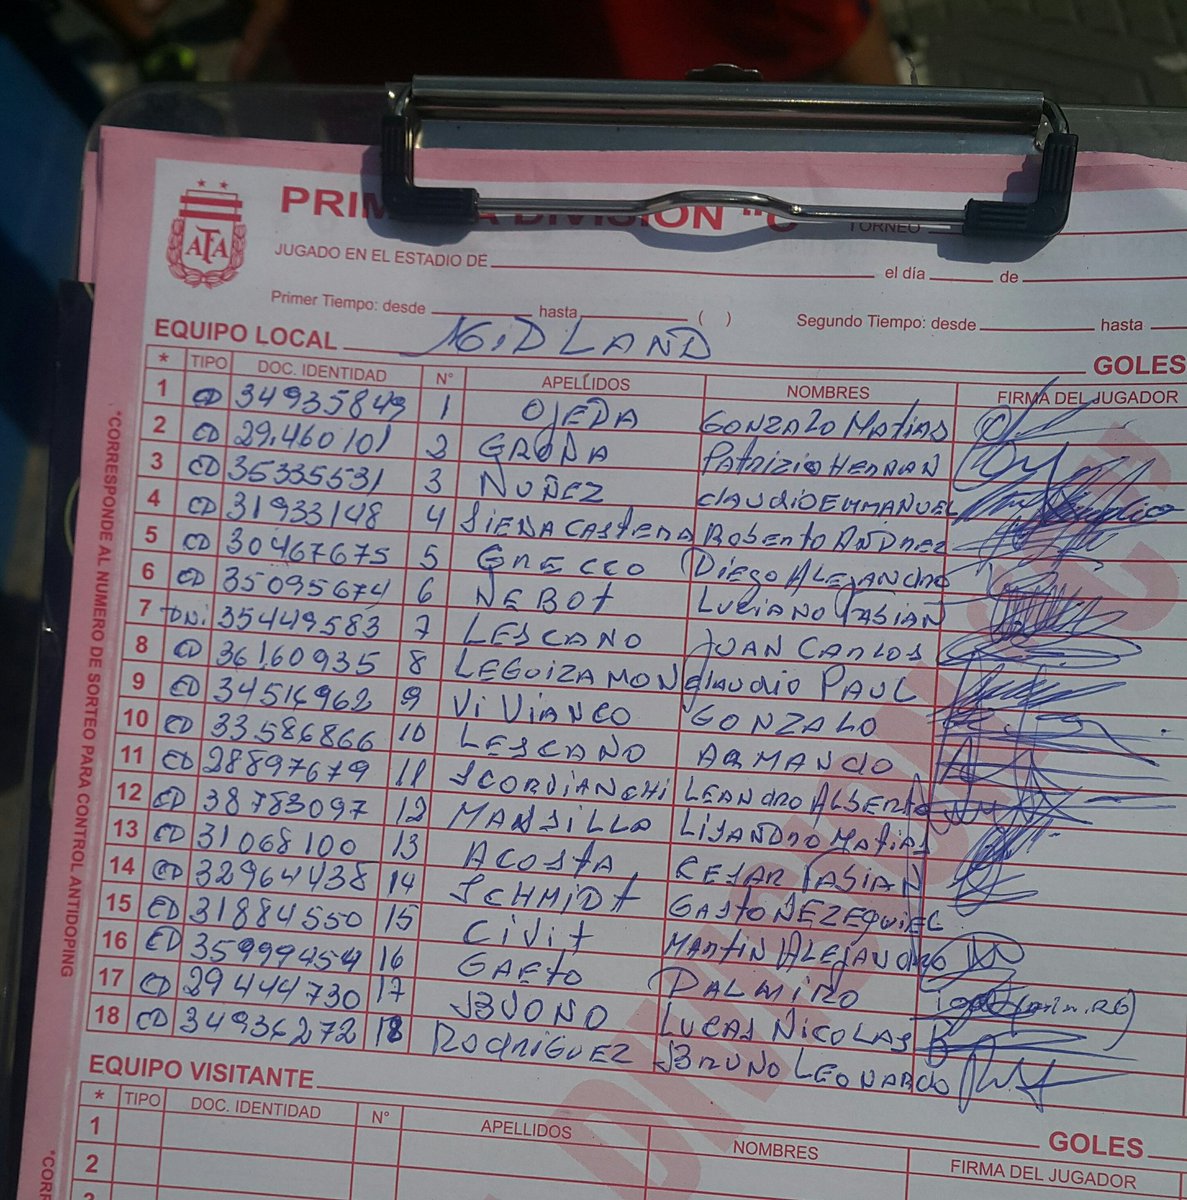 AFA
PRIMERA DIVISION "C" TORNEO
JUGADO EN EL ESTADIO DE el día de
Primer Tiempo: desde hasta ( ) Segundo Tiempo: desde hasta
EQUIPO LOCAL MIDLAND
GOLES
* TIPO DOC. IDENTIDAD N° APELLIDOS NOMBRES FIRMA DEL JUGADOR
1 CD 34935849 1 OJEDA GONZALO MATIAS
2 CD 29.460101 2 GROÑA PATRIZIO HERNAN
3 CD 35335531 3 NUÑEZ CLAUDIO EMMANUEL
4 CD 31933148 4 SIERRA CASTERA ROBERTO ANDREZ
5 CD 30467675 5 GRECCO DIEGO ALEJANDRO
6 CD 35095674 6 NEBOT LUCIANO FABIAN
7 DNi 35449583 7 LESCANO JUAN CARLOS
8 CD 36160935 8 LEGUIZAMON CLAUDIO PAUL
9 CD 34514962 9 ViVIANCO GONZALO
10 CD 33.586866 10 LESCANO ARMANDO
11 CD 28897679 11 SCORDIANCHI LEANDRO ALBERTO
12 CD 38783097 12 MANSILLA LISANDRO MATIAS
13 CD 31068100 13 ACOSTA CESAR FABIAN
14 CD 32964438 14 SCHMIDT GASTON EZEQUIEL
15 CD 31884550 15 CIVIT MARTIN ALEJANDRO
16 CD 35999454 16 GAETO PALMIRO
17 CD 29444730 17 BUONO LUCAS NICOLAS
18 CD 34936272 18 RODRIGUEZ BRUNO LEONARDO
EQUIPO VISITANTE
GOLES
* TIPO DOC. IDENTIDAD N° APELLIDOS NOMBRES FIRMA DEL JUGADOR
1
2
*CORRESPONDE AL NUMERO DE SORTEO PARA CONTROL ANTIDOPING
*CORR